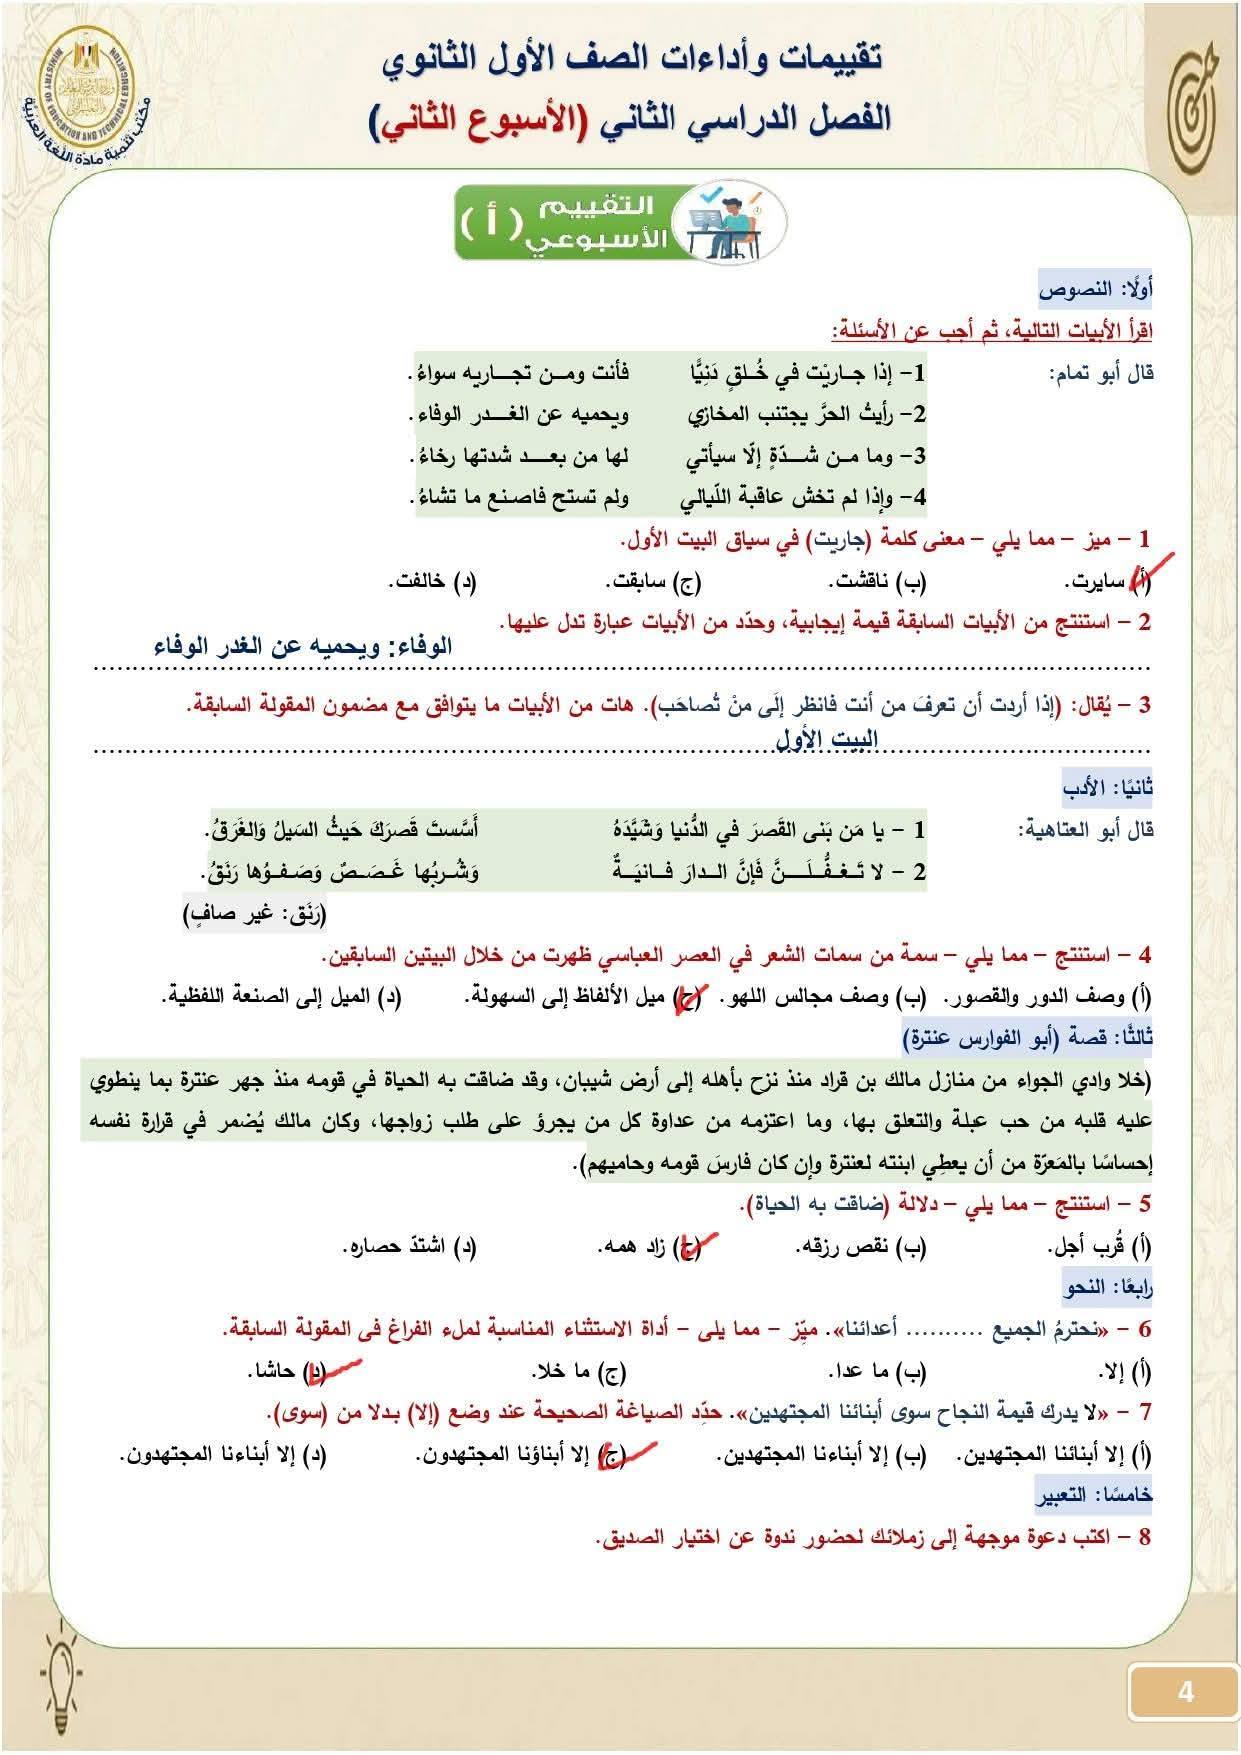 تقييمات وأداءات الصف الأول الثانوي
الفصل الدراسي الثاني (الأسبوع الثاني)
MINISTRY OF EDUCATION AND TECHNICAL EDUCATION
مكتب تنمية مادة اللغة العربية
التقييم
الأسبوعي (أ)
أولًا: النصوص
اقرأ الأبيات التالية، ثم أجب عن الأسئلة:
قال أبو تمام: 1- إذا جـاريْت في خُـلقٍ دَنِيًّا فأنت ومـن تجـاريه سواءُ.
2- رأيتُ الحرَّ يجتنب المخازي ويحميه عن الغـدر الوفاء.
3- وما مـن شـدّةٍ إلّا سيأتي لها من بعـد شدتها رخاءُ.
4- وإذا لم تخش عاقبة اللّيالي ولم تستح فاصنع ما تشاءُ.
1 – ميز – مما يلي – معنى كلمة (جاريت) في سياق البيت الأول.
(أ) سايرت. (ب) ناقشت. (ج) سابقت. (د) خالفت.
2 – استنتج من الأبيات السابقة قيمة إيجابية، وحدّد من الأبيات عبارة تدل عليها.
الوفاء: ويحميه عن الغدر الوفاء
3 – يُقال: (إذا أردت أن تعرفَ من أنت فانظر إلَى منْ تُصاحَب). هات من الأبيات ما يتوافق مع مضمون المقولة السابقة.
البيت الأول
ثانيًا: الأدب
قال أبو العتاهية: 1 – يا مَن بَنى القَصرَ في الدُّنيا وَشَيَّدَهُ أَسَّستَ قَصرَكَ حَيثُ السَيلُ وَالغَرَقُ.
2 – لا تَـغـفُـلَـنَّ فَإِنَّ الـدارَ فـانيَـةٌ وَشُـربُها غَـصَـصٌ وَصَـفـوُها رَنَقُ.
(رَنَق: غير صافٍ)
4 – استنتج – مما يلي – سمة من سمات الشعر في العصر العباسي ظهرت من خلال البيتين السابقين.
(أ) وصف الدور والقصور. (ب) وصف مجالس اللهو. (ج) ميل الألفاظ إلى السهولة. (د) الميل إلى الصنعة اللفظية.
ثالثًا: قصة (أبو الفوارس عنترة)
(خلا وادي الجواء من منازل مالك بن قراد منذ نزح بأهله إلى أرض شيبان، وقد ضاقت به الحياة في قومه منذ جهر عنترة بما ينطوي
عليه قلبه من حب عبلة والتعلق بها، وما اعتزمه من عداوة كل من يجرؤ على طلب زواجها، وكان مالك يُضمر في قرارة نفسه
إحساسًا بالمَعرّة من أن يعطِي ابنته لعنترة وإن كان فارسَ قومه وحاميهم).
5 – استنتج – مما يلي – دلالة (ضاقت به الحياة).
(أ) قُرب أجل. (ب) نقص رزقه. (ج) زاد همه. (د) اشتدّ حصاره.
رابعًا: النحو
6 – «نحترمُ الجميع .......... أعدائنا». ميِّز – مما يلى – أداة الاستثناء المناسبة لملء الفراغ فى المقولة السابقة.
(أ) إلا. (ب) ما عدا. (ج) ما خلا. (د) حاشا.
7 – «لا يدرك قيمة النجاح سوى أبنائنا المجتهدين». حدِّد الصياغة الصحيحة عند وضع (إلا) بـدلا من (سوى).
(أ) إلا أبنائنا المجتهدين. (ب) إلا أبناءنا المجتهدين. (ج) إلا أبناؤنا المجتهدون. (د) إلا أبناءنا المجتهدون.
خامسًا: التعبير
8 – اكتب دعوة موجهة إلى زملائك لحضور ندوة عن اختيار الصديق.
4